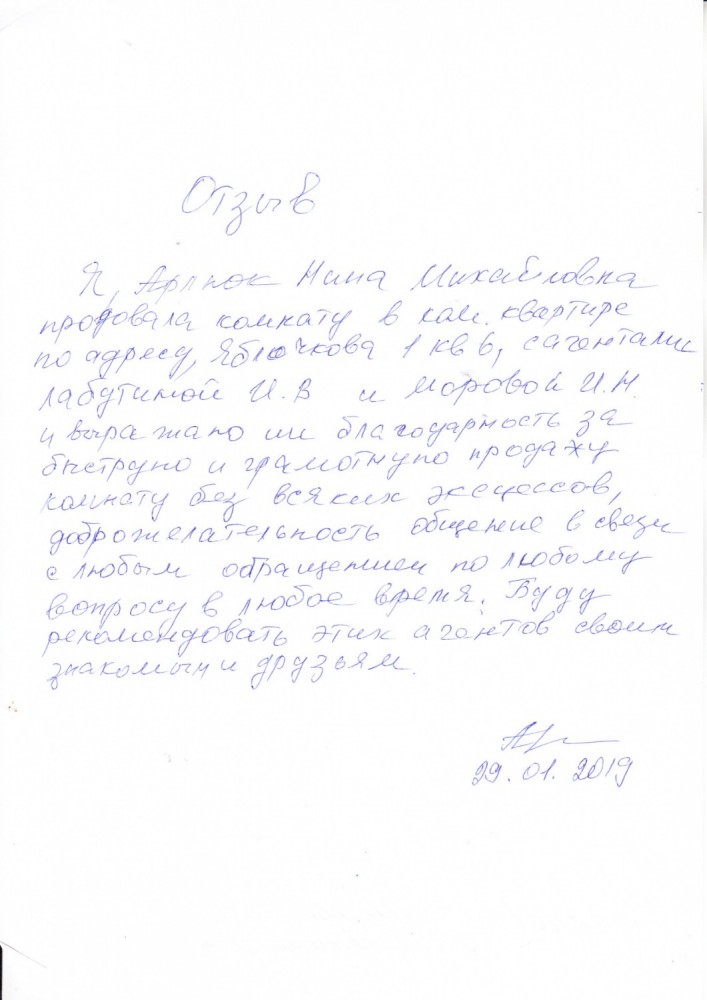 Отзыв
Я, Арлюк Нина Михайловна
продовала комнату в ком. квартире
по адресу, Яблочкова 1 кв 6, с агентами
Лабутиной И.В и Моровой И.Н.
и выражаю им благодарность за
быструю и грамотную продажу
комнату без всяких эксцессов,
доброжелательность общение в связи
с любым обращением по любому
вопросу в любое время. Буду
рекомендовать этих агентов своим
знакомым и друзьям.
29.01.2019